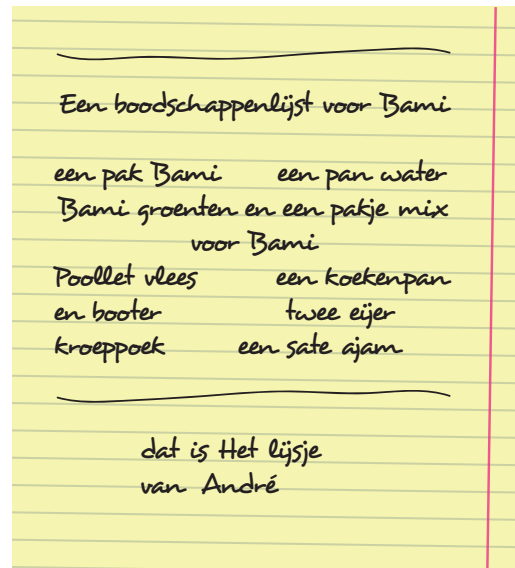 Een boodschappenlijst voor Bami
een pak Bami een pan water
Bami groenten en een pakje mix
voor Bami
Poollet vlees een koekenpan
en booter twee eijer
kroeppoek een sate ajam
dat is Het lijsje
van André